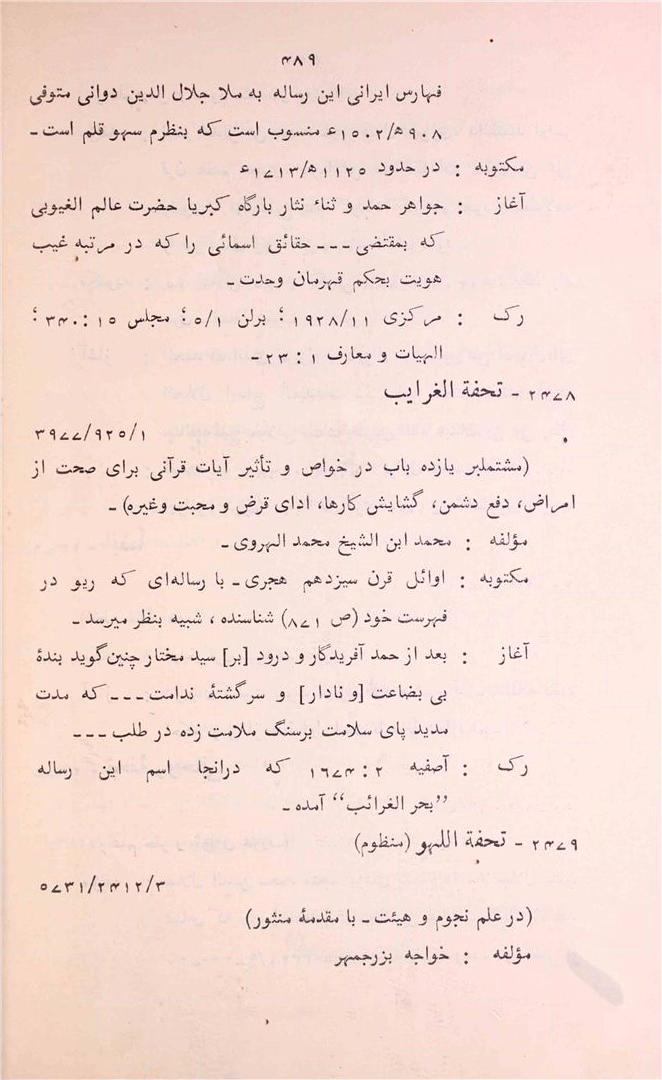 ۴۸۹
فهارس ایرانی این رساله به ملا جلال الدین دوانی متوفی
۹۰۸ه/۱۵۰۲ء منسوب است که بنظرم سهو قلم است ـ
مکتوبه : در حدود ۱۱۲۵ه/۱۷۱۳ء
آغاز : جواهر حمد و ثناء نثار بارگاه کبریا حضرت عالم الغیوبی
که بمقتضی ـــ حقائق اسمائی را که در مرتبه غیب
هویت بحکم قهرمان وحدت ـ
رک : مرکزی ۱۹۲۸/۱۱ ؛ برلن ۵/۱ ؛ مجلس ۱۵ : ۳۴۰ ؛
الهیات و معارف ۱ : ۲۳ ـ
۲۴۷۸ - تحفة الغرایب
۳۹۷۷/۹۲۵/۱
(مشتملبر یازده باب در خواص و تأثیر آیات قرآنی برای صحت از
امراض، دفع دشمن، گشایش کارها، ادای قرض و محبت وغیره) ـ
مؤلفه : محمد ابن الشیخ محمد الهروی ـ
مکتوبه : اوائل قرن سیزدهم هجری ـ با رساله‌ای که ریو در
فهرست خود (ص ۸۷۱) شناسنده ، شبیه بنظر میرسد ـ
آغاز : بعد از حمد آفریدگار و درود [بر] سید مختار چنین‌گوید بندهٔ
بی بضاعت [و نادار] و سرگشتهٔ ندامت ـــ که مدت
مدید پای سلامت برسنگ ملامت زده در طلب ـــ
رک : آصفیه ۲ : ۱۶۷۴ که درانجا اسم این رساله
”بحر الغرائب“ آمده ـ
۲۴۷۹ - تحفة اللهو (منظوم)
۵۷۳۱/۲۴۱۲/۳
(در علم نجوم و هیئت ـ با مقدمهٔ منثور)
مؤلفه : خواجه بزرجمهر